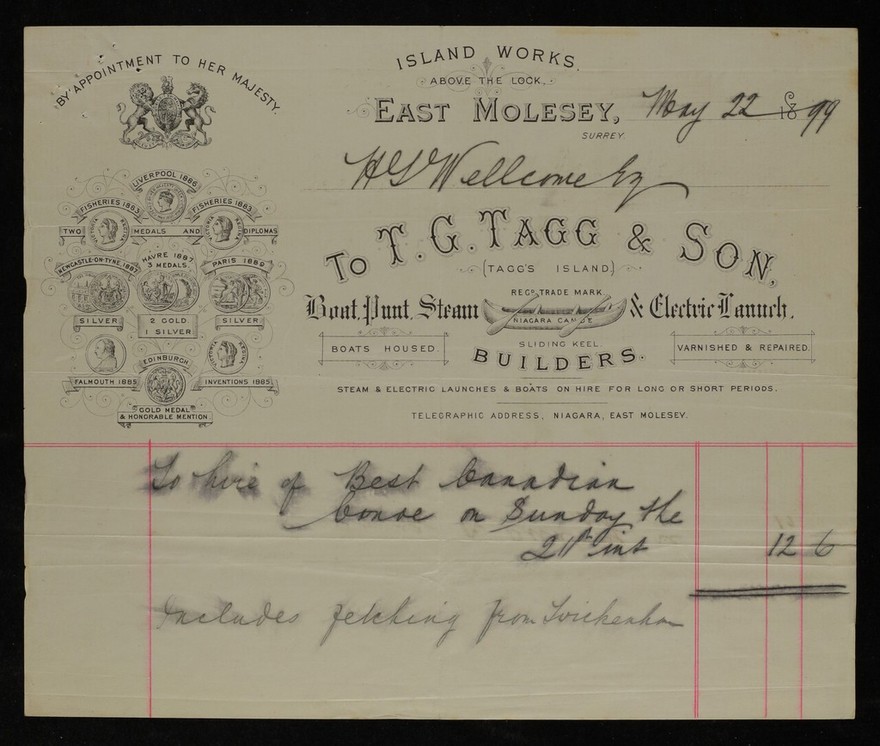 BY APPOINTMENT TO HER MAJESTY.
LIVERPOOL 1886
FISHERIES 1883 FISHERIES 1883
TWO MEDALS AND DIPLOMAS
NEWCASTLE-ON-TYNE, 1887 HAVRE 1887 3 MEDALS. PARIS 1889
SILVER 2 GOLD 1 SILVER SILVER
EDINBURGH
FALMOUTH 1885 INVENTIONS 1885
GOLD MEDAL
& HONORABLE MENTION
ISLAND WORKS.
ABOVE THE LOCK.
EAST MOLESEY, May 22 1899
SURREY.
H S Wellcome Eq
TO T. G. TAGG & SON,
(TAGG'S ISLAND)
REGD TRADE MARK
Boat, Punt, Steam & Electric Launch.
NIAGARA CANOE
SLIDING KEEL.
BOATS HOUSED. BUILDERS. VARNISHED & REPAIRED.
STEAM & ELECTRIC LAUNCHES & BOATS ON HIRE FOR LONG OR SHORT PERIODS.
TELEGRAPHIC ADDRESS, NIAGARA, EAST MOLESEY.
To hire of Best Canadian
Canoe on Sunday the
21st inst 12 6
Includes fetching from Twickenham